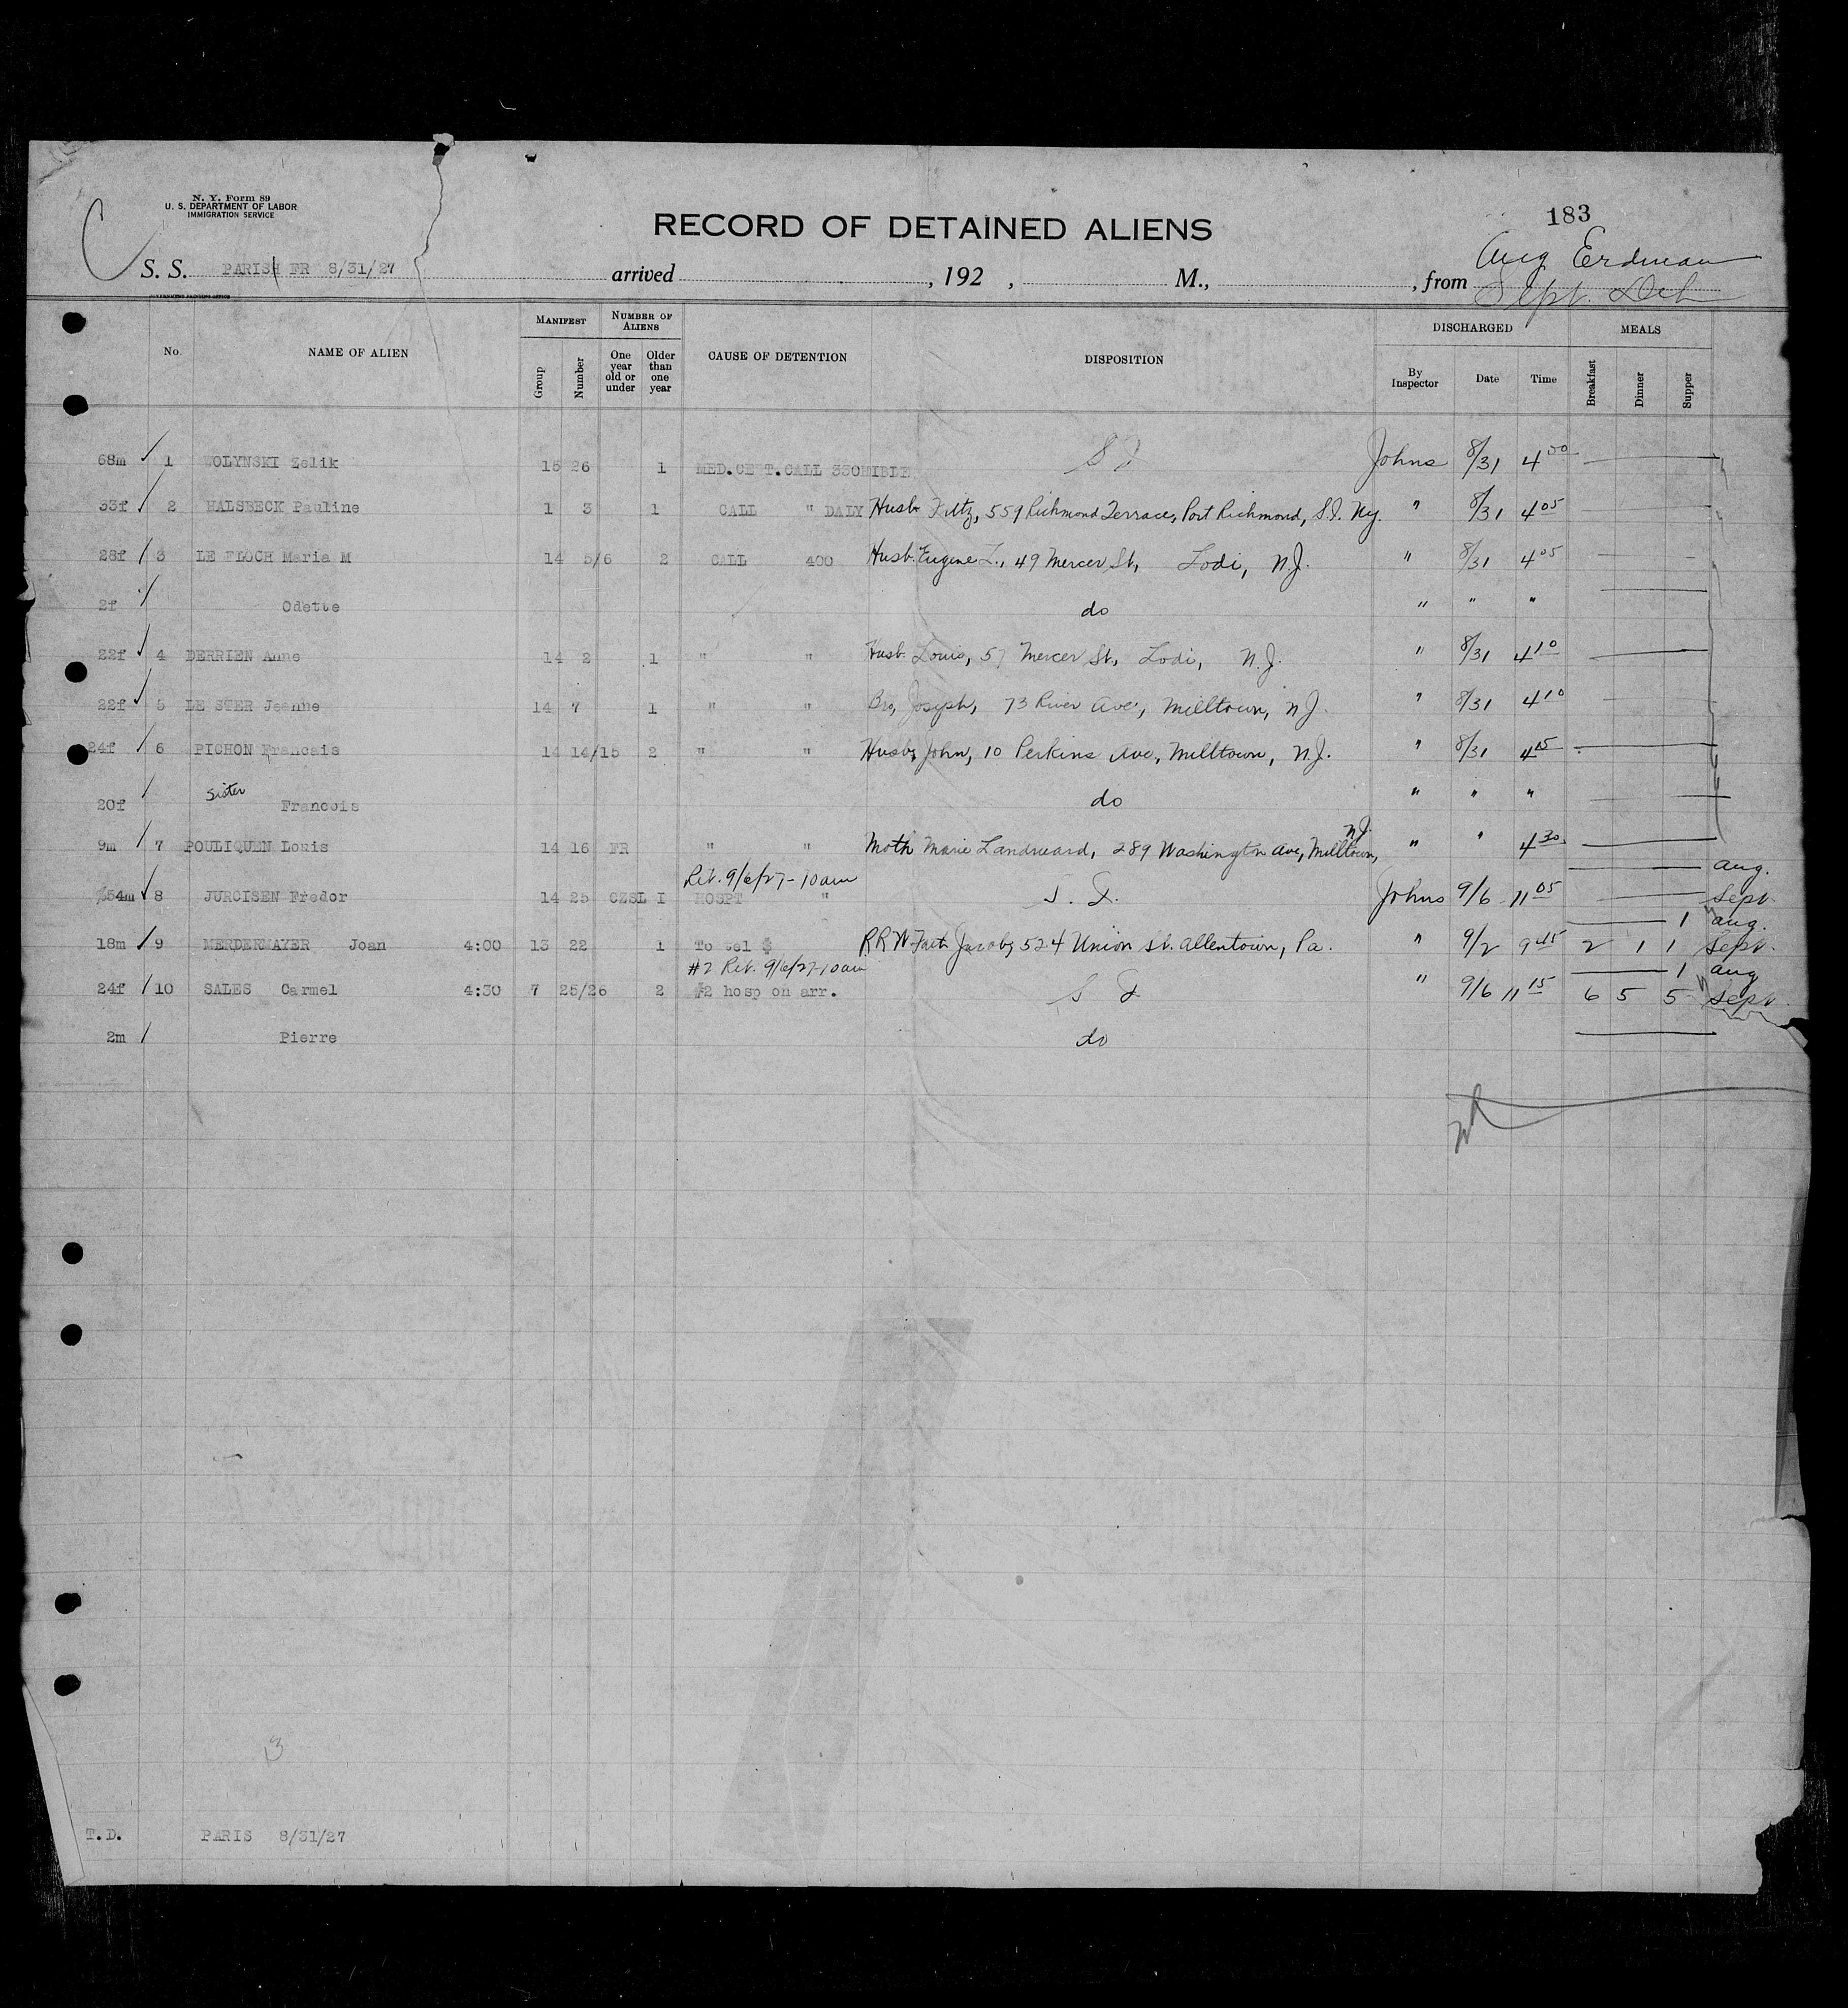 N. Y. Form 89
U. S. DEPARTMENT OF LABOR
IMMIGRATION SERVICE
183
RECORD OF DETAINED ALIENS
Aug Erdman
S. S. PARIS FR 8/31/27 arrived , 192 , M., , from Sept.
GOVERNMENT PRINTING OFFICE
No. NAME OF ALIEN MANIFEST Group Number NUMBER OF ALIENS One year old or under Older than one year CAUSE OF DETENTION DISPOSITION DISCHARGED By Inspector Date Time MEALS Breakfast Dinner Supper
68m 1 WOLYNSKI Zelik 15 26 1 MED.CE T.CALL 330 S I Johns 8/31 4 00
33f 2 HALSBECK Pauline 1 3 1 CALL " DALY Husb Fritz, 559 Richmond Terrace, Port Richmond, S.I. Ny. " 8/31 4 05
28f 3 LE FLOCH Maria M 14 5/6 2 CALL 400 Husb. Eugene L., 49 Mercer St, Lodi, N.J. " 8/31 4 05
2f Odette do " " "
22f 4 DERRIEN Anne 14 2 1 " " Husb. Louis, 57 Mercer St, Lodi, N.J. " 8/31 4 10
22f 5 LE STER Jeanne 14 7 1 " " Bro, Joseph, 73 River Ave, Milltown, NJ. " 8/31 4 10
24f 6 PICHON Francais 14 14/15 2 " " Husb, John, 10 Perkins Ave, Milltown, N.J. " 8/31 4 15
20f Sister Francois do " " "
9m 7 POULIQUEN Louis 14 16 FR " " Moth Marie Landrieard, 289 Washington Ave, Milltown, NJ. " " 4 30
Ret. 9/6/27 - 10 am Aug.
54m 8 JURCISEN Fredor 14 25 CZSL I HOSPT " S. I. Johns 9/6 11 05 Sept
1 Aug.
18m 9 MERDERMAYER Joan 4:00 13 22 1 To tel $ RRN Fath Jacob, 524 Union St. Allentown, Pa. " 9/2 9 45 2 1 1 Sept.
#2 Ret. 9/6/27-10 am 1 Aug
24f 10 SALES Carmel 4:30 7 25/26 2 #2 hosp on arr. S I " 9/6 11 15 6 5 5 Sept
2m Pierre do
13
T.D. PARIS 8/31/27